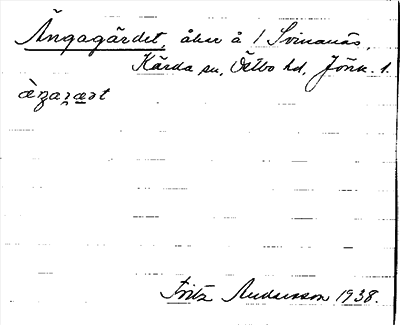 Ängagärdet, åker å 1 Svinanäs,
Kärda sn, Östbo hd, Jönk. l.
Fritz Andersson 1938.